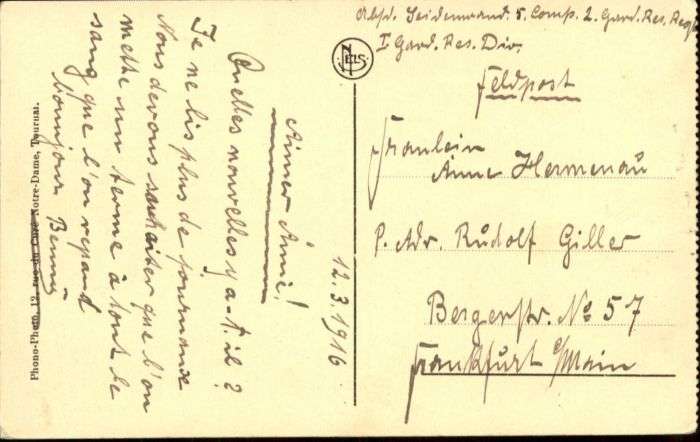 12.3.1916
Aimer Amie!
Quelles nouvelles y a-t-il?
Je ne lis plus de journaux
Nous devons souhaiter que l'on
mette un terme à tout le
sang que l'on repand
bonjour
Phono-Photo, 12, rue du Curé Notre-Dame, Tournai.
NELS
Absd. Seidenwand. 5. Comp. 2. Gard. Res. Reg
I Gard. Res. Div.
Feldpost
Fraulein
Anne Hermenau
P. Adr. Rudolf Giller
Bergerstr. No 57
Frankfurt a/Main